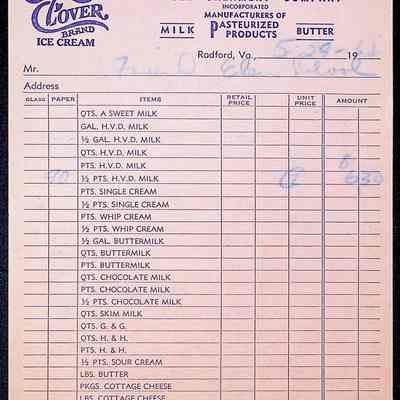 CLOVER
BRAND
ICE CREAM
COMPANY
INCORPORATED
MANUFACTURERS OF
MILK PASTEURIZED PRODUCTS BUTTER
Radford, Va., 19
Mr.
Address
GLASS PAPER ITEMS RETAIL PRICE UNIT PRICE AMOUNT
QTS. A SWEET MILK
GAL. H.V.D. MILK
½ GAL. H.V.D. MILK
QTS. H.V.D. MILK
PTS. H.V.D. MILK
90 ½ PTS. H.V.D. MILK 630
PTS. SINGLE CREAM
½ PTS. SINGLE CREAM
PTS. WHIP CREAM
½ PTS. WHIP CREAM
½ GAL. BUTTERMILK
QTS. BUTTERMILK
PTS. BUTTERMILK
QTS. CHOCOLATE MILK
PTS. CHOCOLATE MILK
½ PTS. CHOCOLATE MILK
QTS. SKIM MILK
QTS. G. & G.
QTS. H. & H.
PTS. H. & H.
½ PTS. SOUR CREAM
LBS. BUTTER
PKGS. COTTAGE CHEESE
LBS. COTTAGE CHEESE